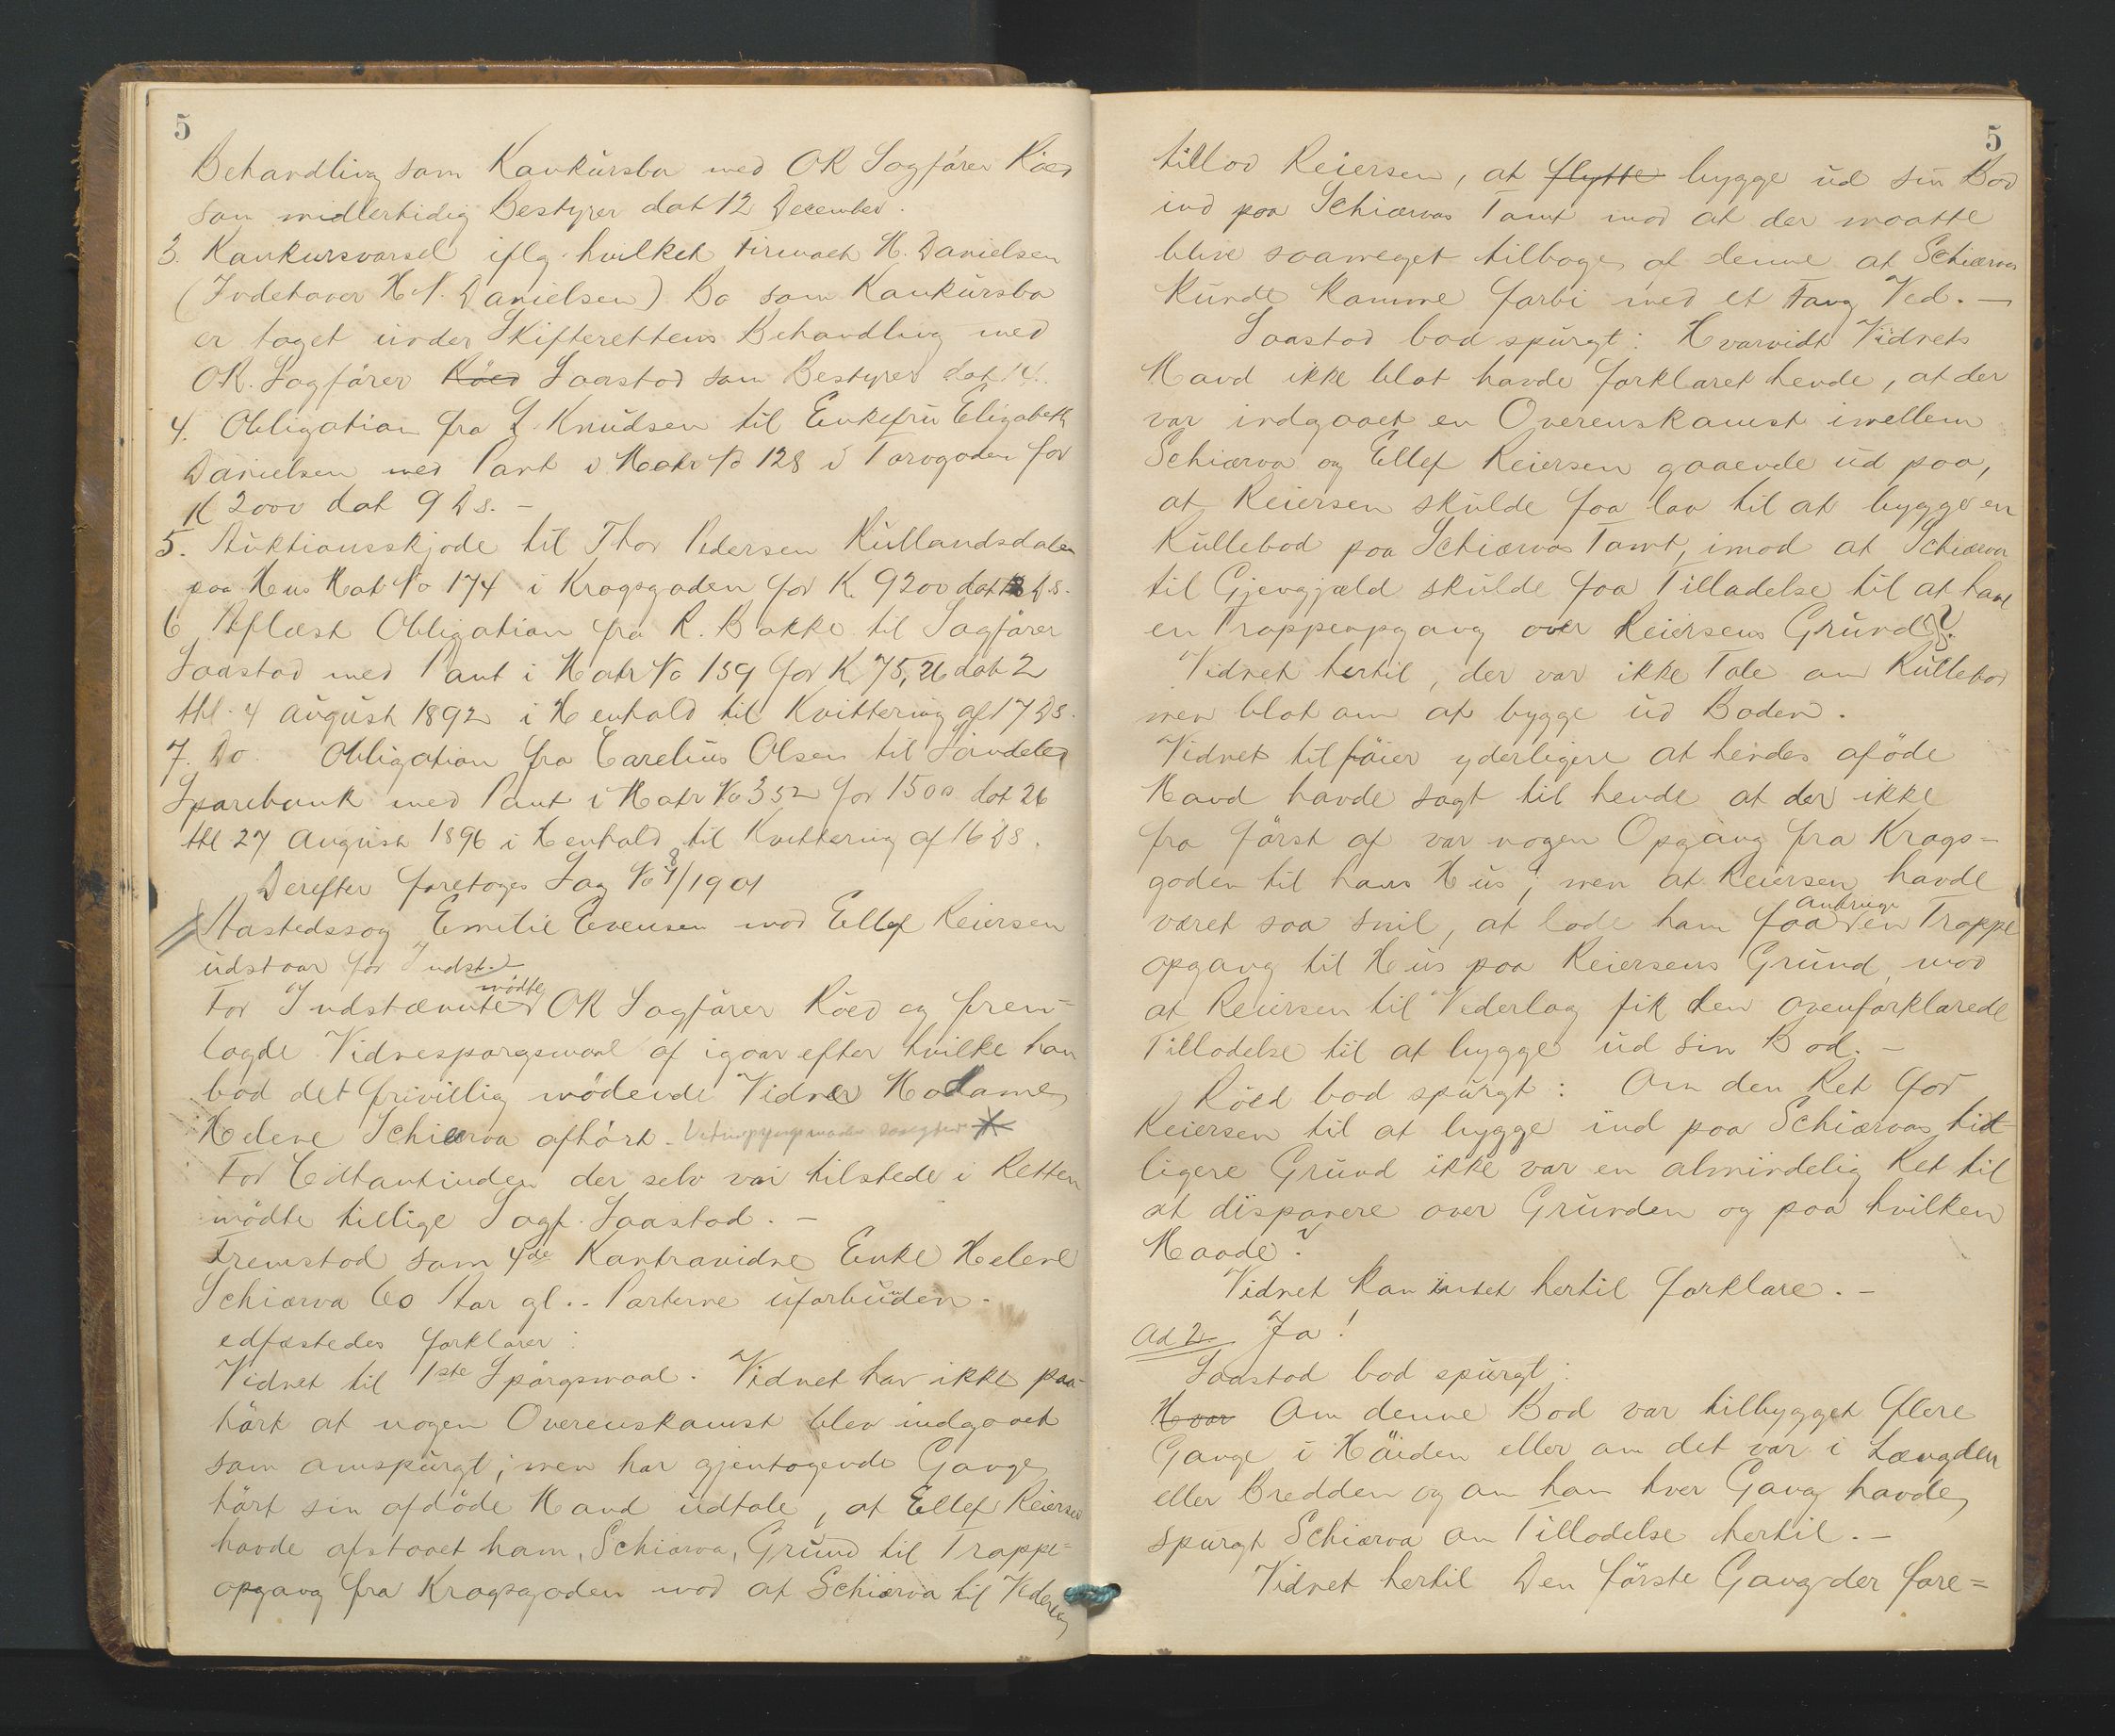 5
Behandling som Konkursbo med OR Sagfører Röed
som midlertidig Bestyrer dat 12 December.
3. Konkursvarsel iflg. hvilket Firmaet H. Danielsen
(Indehaver H. N. Danielsen) Bo som Konkursbo
er taget under Skifterettens Behandling med
OR. Sagfører Röed Saastad som Bestyrer dat 14.
4. Obligation fra L. Knudsen til Enkefru Elizabeth
Danielsen med Pant i Matr No 128 i Torvgaden for
K 2000 dat 9 Ds. -
5. Auktionsskjøde til Thor Pedersen Kullandsdalen
paa Hus Mat No 174 i Kragsgaden for K. 9200 dat Ds.
6 Aflæst Obligation fra R. Bakke til Sagfører
Saastad med Pant i Matr No 159 for K 75,26 dat 2
thl. 4 August 1892 i Henhold til Kvittering af 17 Ds.
7. Do. Obligation fra Carelius Olsen til Söndeled
Sparebank med Pant i Matr No 352 for 1500 dat 26
thl 27 August 1896 i Henhold til Kvittering af 16 Ds.
Derefter foretoges Sag No 8/1901
Aastedssag Emilie Evensen mod Ellef Reiersen
udstaar for Indst.
For Indstævnte mödte OR Sagfører Röed og frem=
lagde Vidnespørgsmaal af igaar efter hvilke han
bad det frivillig mödende Vidne Madame
Helene Schiærva afhört.
For Citantinden der selv var tilstede i Retten
mödte tillige Sagf. Saastad. -
Fremstod som 4de Kontravidne Enke Helene
Schiærva 60 Aar gl. - Parterne uforbuden -
edfæstedes forklarer:
Vidnet til 1ste Spørgsmaal. Vidnet har ikke paa-
hört at nogen Overenskomst blev indgaaet
som omspurgt; men har gjentagende Gange
hört sin afdöde Mand udtale, at Ellef Reiersen
havde afstaaet ham, Schiærva, Grund til Trappe=
opgang fra Kragsgaden mod at Schiærva til Vederlag
5
tillod Reiersen, at flytte bygge ud sin Bod
ind paa Schiærvas Tomt mod at der maatte
blive saameget tilbage af denne at Schiærva
kunde komme forbi med et Fang Ved. -
Saastad bad spurgt: Hvorvidt Vidnets
Mand ikke blot havde forklaret hende, at der
var indgaaet en Overenskomst imellem
Schiærva og Ellef Reiersen gaaende ud paa,
at Reiersen skulde faa lov til at bygge en
Kullebod paa Schiærvas Tomt, imod at Schiærva
til Gjengjæld skulde faa Tilladelse til at have
en Trappeopgang over Reiersens Grund?
Vidnet hertil, der var ikke Tale om Kullebod
men blot om at bygge ud Boden.
Vidnet tilföier yderligere at hendes aföde
Mand havde sagt til hende at der ikke
fra först af var nogen Opgang fra Krags=
gaden til hans Hus; men at Reiersen havde
været saa snil, at lade ham faa anbringe en Trappe
opgang til Hus paa Reiersens Grund mod
at Reiersen til Vederlag fik den ovenforklarede
Tilladelse til at bygge ud sin Bod. -
Röed bad spurgt: Om den Ret for
Reiersen til at bygge ind paa Schiærvas tid-
ligere Grund ikke var en almindelig Ret til
at disponere over Grunden og paa hvilken
Maade?
Vidnet kan intet hertil forklare. -
Ad 2 Ja!
Saastad bad spurgt:
Hvor Om denne Bod var tilbygget flere
Gange i Höiden eller om det var i Længden
eller Bredden og om han hver Gang havde
spurgt Schiærva om Tilladelse hertil. -
Vidnet hertil Den förste Gang der fore=